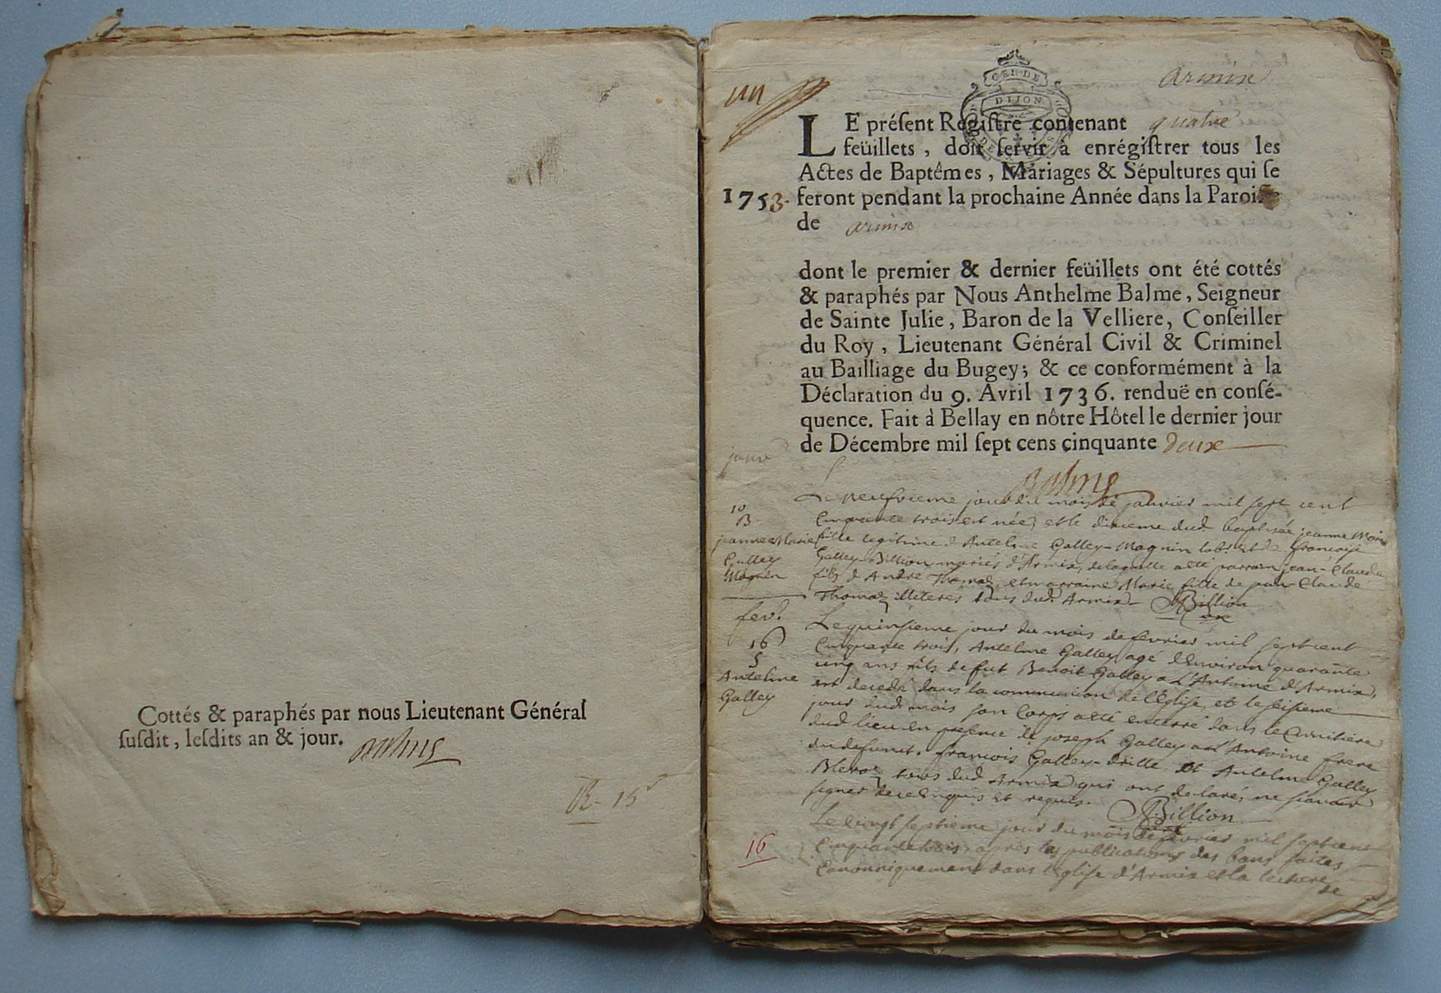 Cottés & paraphés par nous Lieutenant Général
susdit, lesdits an & jour.
Balme
R. 15
armix
GEN. DE
DIJON
LE présent Registre contenant quatre
feüillets, doit servir à enrégistrer tous les
Actes de Baptêmes, Mariages & Sépultures qui se
1753. feront pendant la prochaine Année dans la Paroisse
de armix
dont le premier & dernier feüillets ont été cottés
& paraphés par Nous Anthelme Balme, Seigneur
de Sainte Julie, Baron de la Velliere, Conseiller
du Roy, Lieutenant Général Civil & Criminel
au Bailliage du Bugey; & ce conformément à la
Déclaration du 9. Avril 1736. renduë en consé-
quence. Fait à Bellay en nôtre Hôtel le dernier jour
de Décembre mil sept cens cinquante deux
Balme
janv
10
B
jeanne Marie
Galley
Magnin
Le neufvieme jour du mois de janvier mil sept cent
Cinquante trois est née, et le dixieme dud baptisée jeanne Marie
fille legitime d'Antelme Galley-Magnin et de françoise
Galley-Billion mariés d'Armix, de laquelle a été parrain jean-Claude
fils d'André Thomaz, et marraine Marie fille de jean Claude
Thomaz tous dud. Armix. Billion
curé
fevr.
16
S
Antelme
Galley
Le quinsieme jour du mois de fevrier mil sept cent
Cinquante trois, Antelme Galley agé d'environ quarante
cinq ans fils de fut Benoit Galley a L'Antoine d'Armix,
est decedé dans la communion de l'Eglise, et le seisieme
jour dud. mois son Corps a eté enterré dans le Cimitiere
dud. lieu en presence de joseph Galley a L'Antoine frere
du defunct, françois Galley-Drille et Antelme Galley
tous dud. Armix qui ont declaré ne scavoir
signer de ce enquis et requis. Billion
16
Le vingt septieme jour du mois de fevrier mil sept cent
Cinquante trois, apres les publications des bans faites
Canoniquement dans l'Eglise d'Armix et la lecture
de